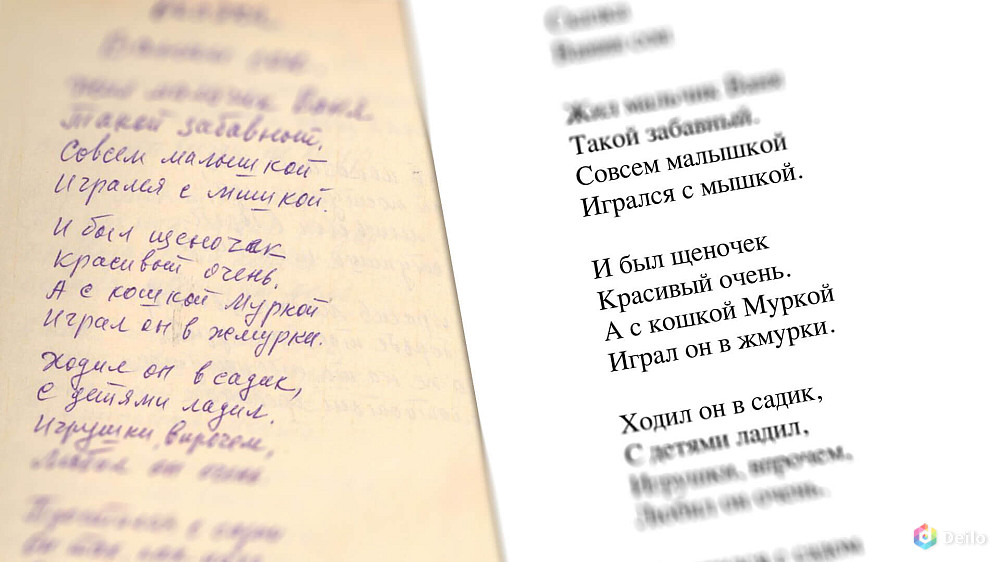 Жил мальчик Ваня
Такой забавный,
Совсем малышкой
Игрался с мишкой.
И был щеночек
Красивый очень.
А с кошкой Муркой
Играл он в жмурки.
Ходил он в садик,
С детями ладил.
Игрушки, впрочем,
Любил он очень.
Сказка
Ванин сон
Жил мальчик Ваня
Такой забавный.
Совсем малышкой
Игрался с мышкой.
И был щеночек
Красивый очень.
А с кошкой Муркой
Играл он в жмурки.
Ходил он в садик,
С детями ладил,
Игрушки, впрочем,
Любил он очень.
с садом
Deilo